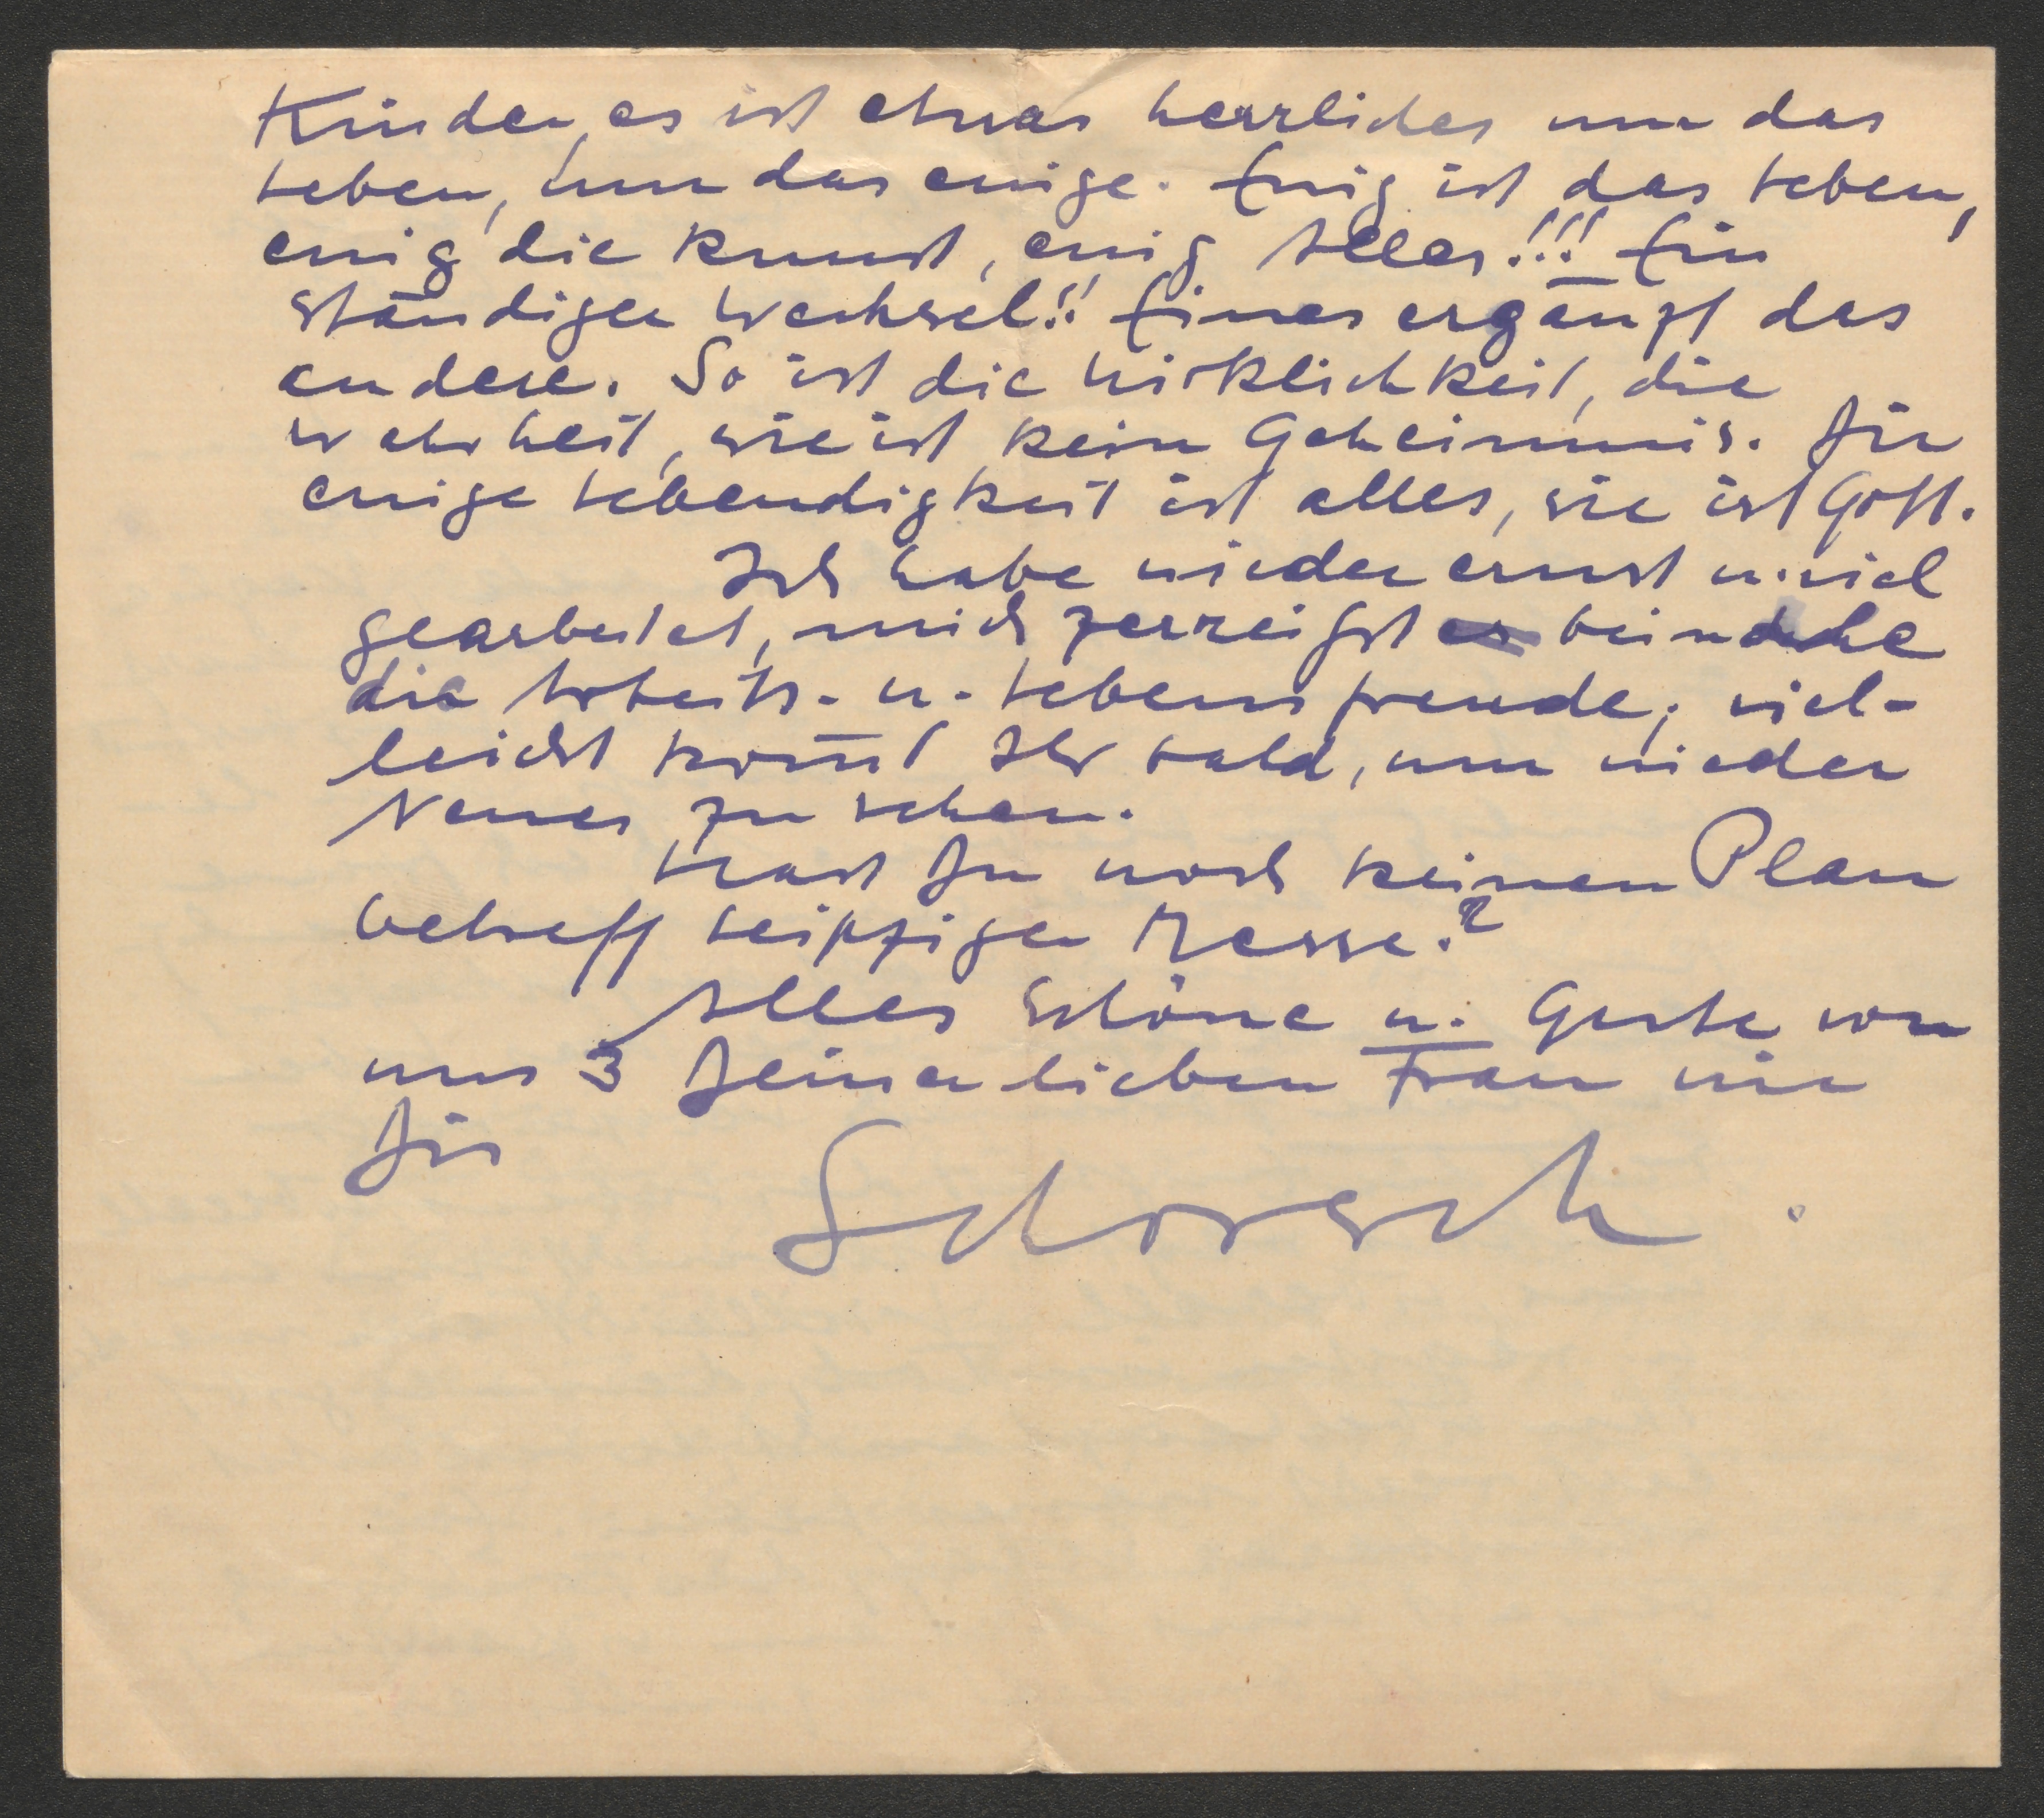 Kinder, es ist etwas herrliches um das
Leben, um das ewige. Ewig ist das Leben,
ewig die Kunst, ewig Alles!!! Ein
ständiger Wechsel!! Eines ergänzt das
andere. So ist die Wirklichkeit, die
Wahrheit, sie ist kein Geheimnis. Die
ewige Lebendigkeit ist alles, sie ist Gott.
Ich habe wieder ernst u. viel
gearbeitet, mich zerreißt es beinahe
die Arbeits- u. Lebensfreude; viel-
leicht kom̅t Ihr bald, um wieder
Neues zu sehen.
Hast Du noch keinen Plan
betreff Leipziger Messe?
Alles Schöne u. Gute von
uns 3 Deiner lieben Frau wie
Dir
Schorsch.